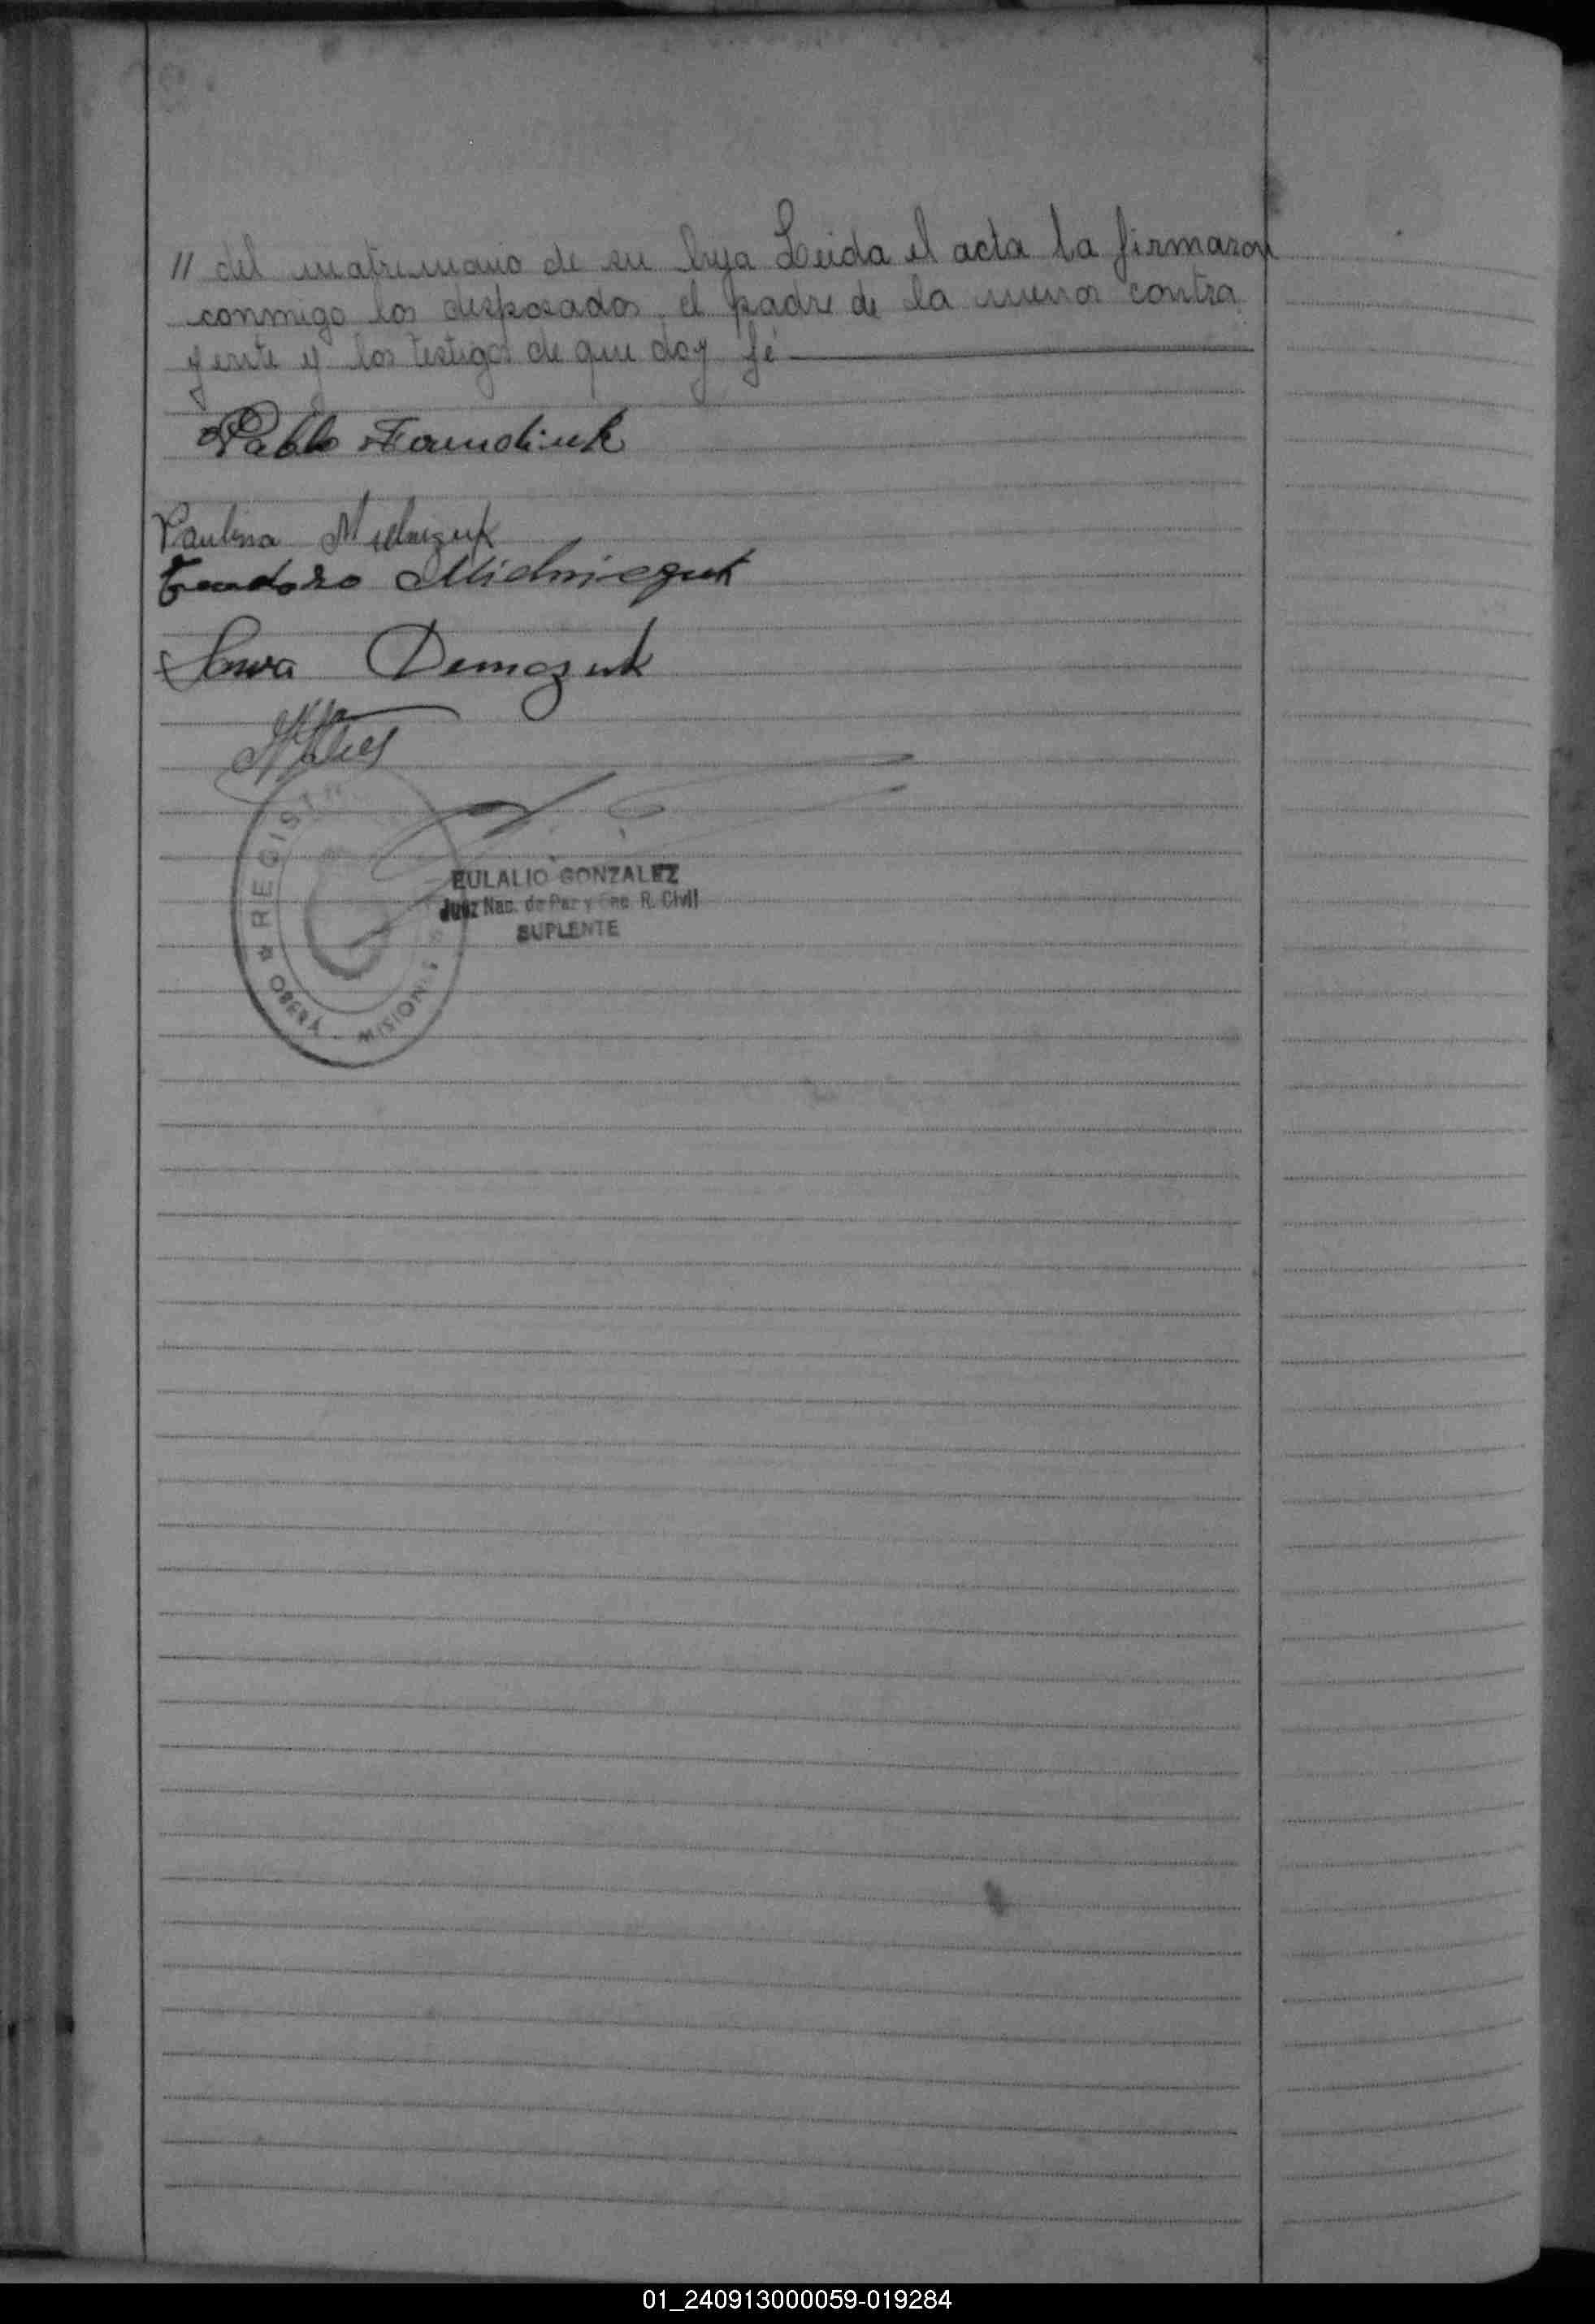 // del matrimonio de su hija Leida el acta la firmaron
conmigo los desposados, el padre de la menor contra
yente y los testigos de que doy fé
Pablo
Paulina Mielniczuk
Teodoro Mielniczuk
Sawa Demczuk
REGISTR
EULALIO GONZALEZ
Juez Nac. de Paz y Enc. R. Civil
SUPLENTE
OBERÁ - MISIONES
01_240913000059-019284